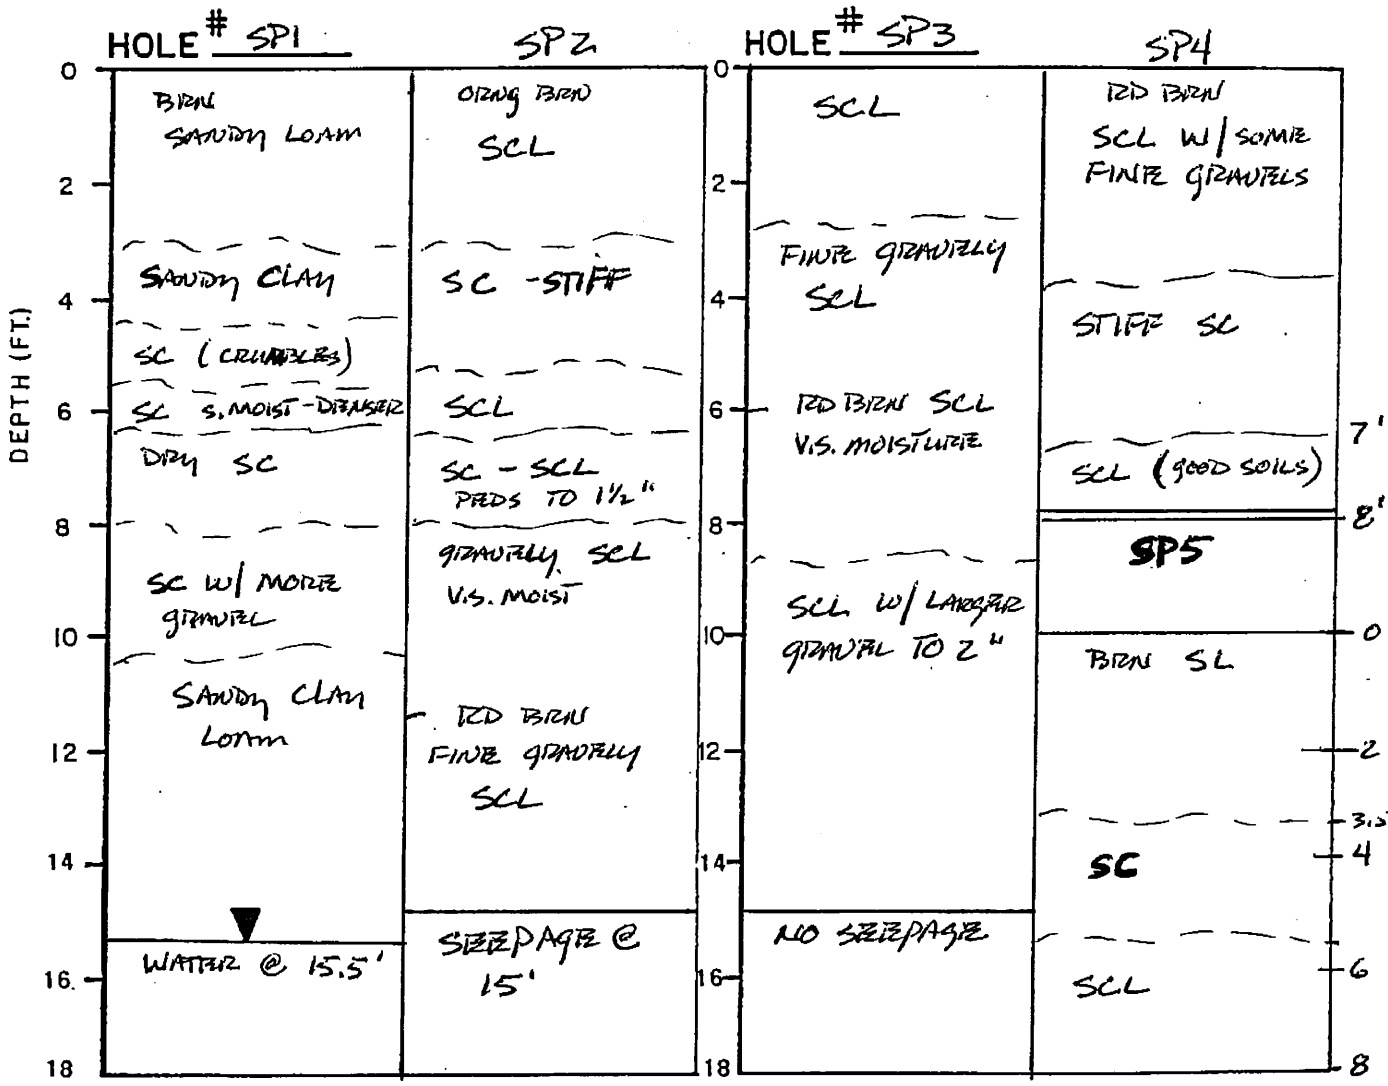 HOLE # SP1
SP2
HOLE # SP3
SP4
DEPTH (FT.)
0
2
4
6
8
10
12
14
16
18
BRN
SANDY LOAM
SANDY CLAY
SC (CRUMBLES)
SC S. MOIST-DENSER
DRY SC
SC W/ MORE
GRAVEL
SANDY CLAY
LOAM
WATER @ 15.5'
ORNG BRN
SCL
SC - STIFF
SCL
SC - SCL
PEDS TO 1 1/2"
GRAVELLY SCL
V.S. MOIST
RD BRN
FINE GRAVELLY
SCL
SEEPAGE @
15'
0
2
4
6
8
10
12
14
16
18
SCL
FINE GRAVELLY
SCL
RD BRN SCL
V.S. MOISTURE
SCL W/ LARGER
GRAVEL TO 2"
NO SEEPAGE
RD BRN
SCL W/ SOME
FINE GRAVELS
STIFF SC
SCL (GOOD SOILS)
7'
8'
SP5
BRN SL
SC
SCL
0
2
3.5
4
6
8